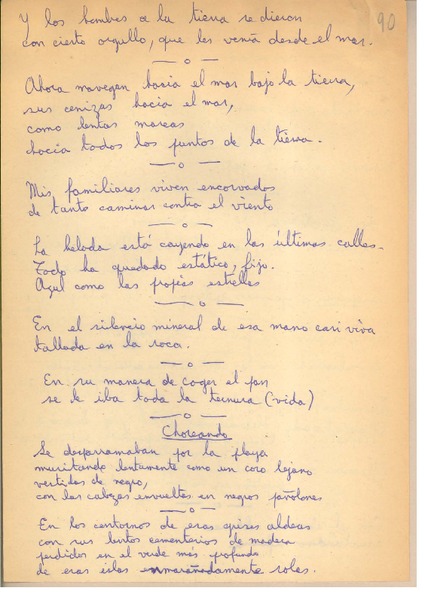 90
Y los hombres a la tierra se dieron
con cierto orgullo, que les venía desde el mar.
— o —
Ahora navegan hacia el mar bajo la tierra,
sus cenizas hacia el mar,
como lentas mareas
hacia todos los puntos de la tierra.
— o —
Mis familiares viven encorvados
de tanto caminar contra el viento
— o —
La helada está cayendo en las últimas calles.
Todo ha quedado estático, fijo.
Azul como las propias estrellas
— o —
En el silencio mineral de esa mano casi viva
tallada en la roca.
— o —
En su manera de coger el pan
se le iba toda la ternura (vida)
— o —
Choreando
Se desparramaban por la playa
musitando lentamente como un coro lejano
vertidas de negro,
con las cabezas envueltas en negros pañolones
— o —
En los contornos de esas grises aldeas
con sus lentos cementerios de madera
perdidos en el verde más profundo
de esas islas enmarañadamente solas.